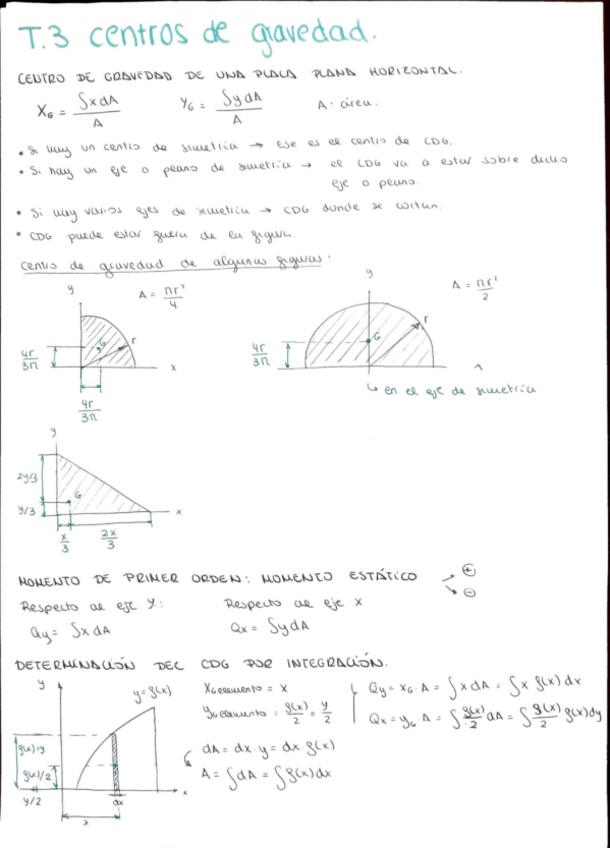 T.3 centros de gravedad.
CENTRO DE GRAVEDAD DE UNA PLACA PLANA HORIZONTAL.
X_G = ∫x dA / A    Y_G = ∫y dA / A    A: área.
• Si hay un centro de simetría → Ese es el centro de CDG.
• Si hay un eje o plano de simetría → el CDG va a estar sobre dicho
eje o plano.
• Si hay varios ejes de simetría → CDG donde se cortan.
• CDG puede estar fuera de la figura.
Centro de gravedad de algunas figuras:
y    A = πr²/4
G    r
4r/3π
x
4r/3π
y    A = πr²/2
r
G
4r/3π
↳ en el eje de simetría
y
2y/3
G
y/3
x
x/3    2x/3
MOMENTO DE PRIMER ORDEN: MOMENTO ESTÁTICO → ⊕
→ ⊖
Respecto al eje Y:    Respecto al eje X
Qy = ∫x dA    Qx = ∫y dA
DETERMINACIÓN DEL CDG POR INTEGRACIÓN.
y    y = f(x)
X_G elemento = x
y_G elemento = f(x)/2 = y/2
Qy = x_G · A = ∫x dA = ∫x f(x) dx
Qx = y_G · A = ∫f(x)/2 dA = ∫f(x)/2 f(x) dy
dA = dx · y = dx f(x)
A = ∫dA = ∫f(x) dx
f(x) = y
f(x)/2
y/2
dx
x
x